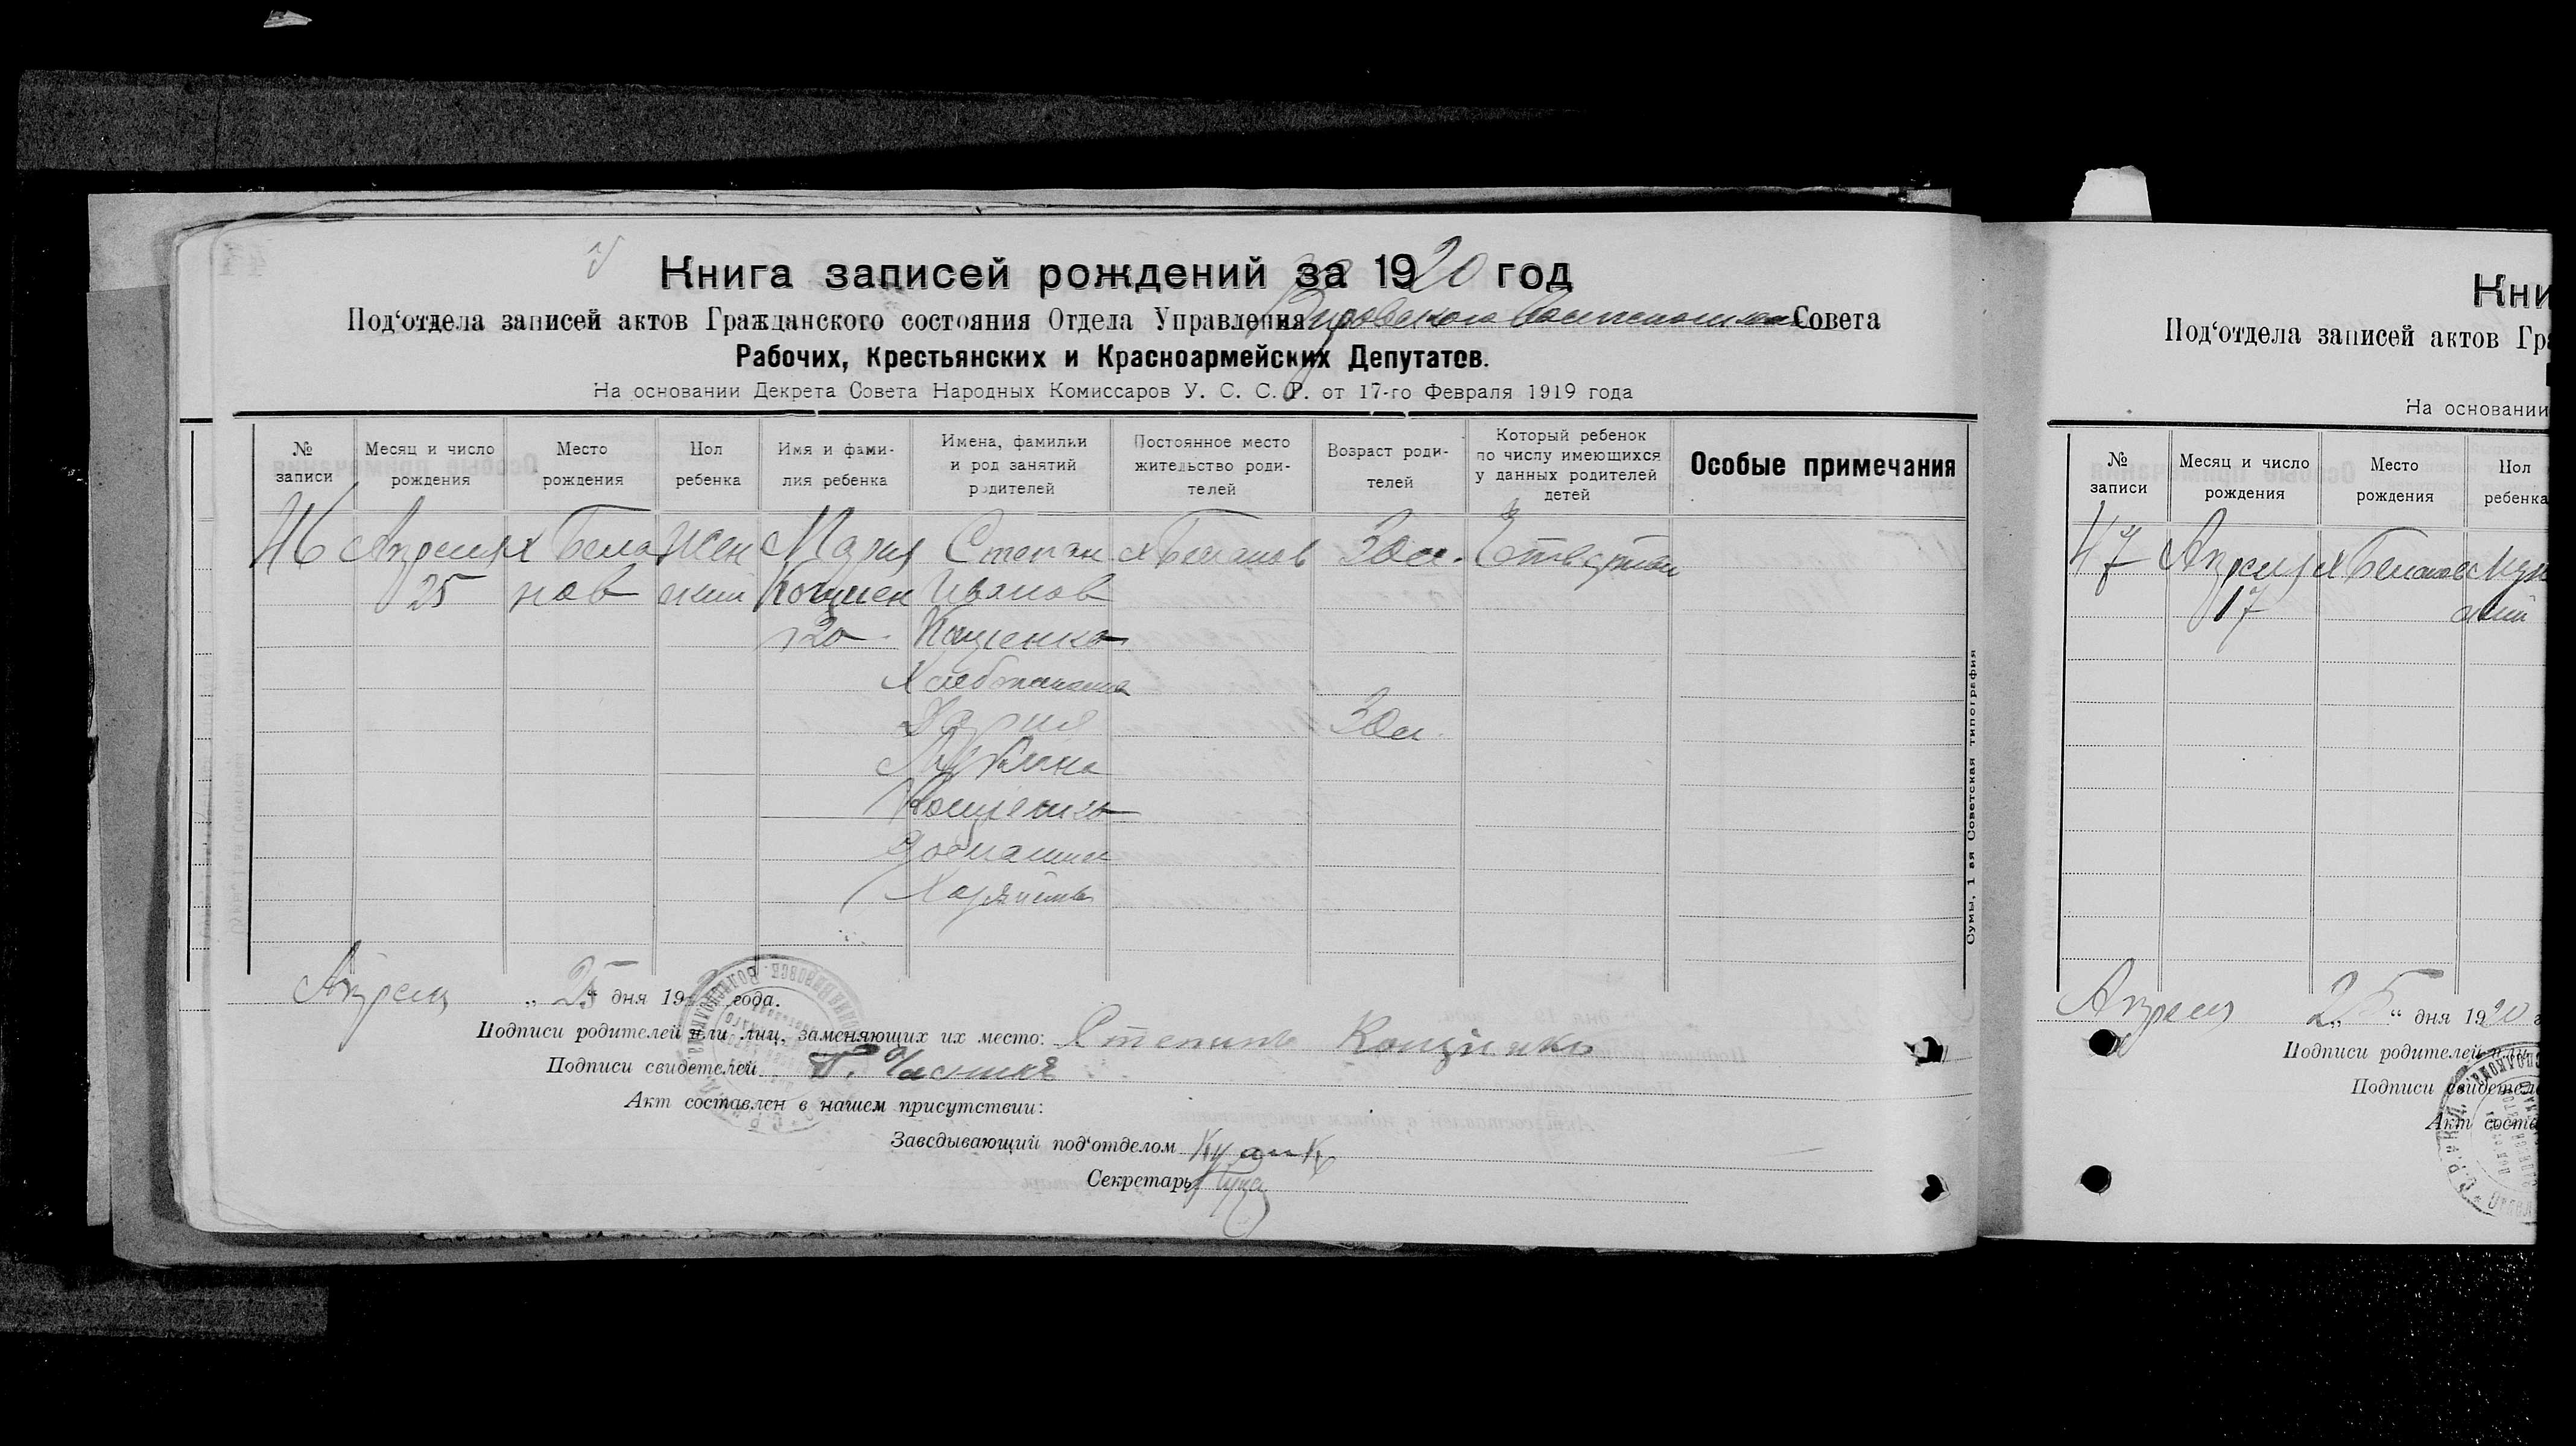 Книга записей рождений за 1920 год
Под‘отдела записей актов Гражданского состояния Отдела Управления Совета
Рабочих, Крестьянских и Красноармейских Депутатов.
На основании Декрета Совета Народных Комиссаров У. С. С. Р. от 17-го Февраля 1919 года
№ записи
Месяц и число рождения
Место рождения
Пол ребенка
Имя и фами-
лия ребенка
Имена, фамилии
и род занятий
родителей
Постоянное место
жительство роди-
телей
Возраст роди-
телей
Который ребенок
по числу имеющихся
у данных родителей
детей
Особые примечания
46 Апреля х Била Жен Мария Степан х Биланов 30 л.
25 нов ский Кощиен Иванов
ко Кощенко
Дария 30 л.
Кощенко
домашнее
Апреля „ 25 “ дня 19 года.
Подписи родителей или лиц, заменяющих их место: Степань
Подписи свидетелей
Акт составлен в нашем присутствии:
Заведывающий под‘отделом
Секретарь
Сумы, 1 ая Советская типография
Кни
Под‘отдела записей актов Гра
На основании
№ записи
Месяц и число рождения
Место рождения
Пол ребенка
47 Апреля х Биланов Муж
17 ский
Апреля „ 25 “ дня 1920 г
Подписи родителей или
Подписи свидетеле
Акт соста